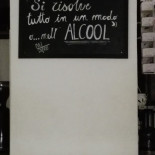 Si risolve
tutto in un modo
o...nell' ALCOOL